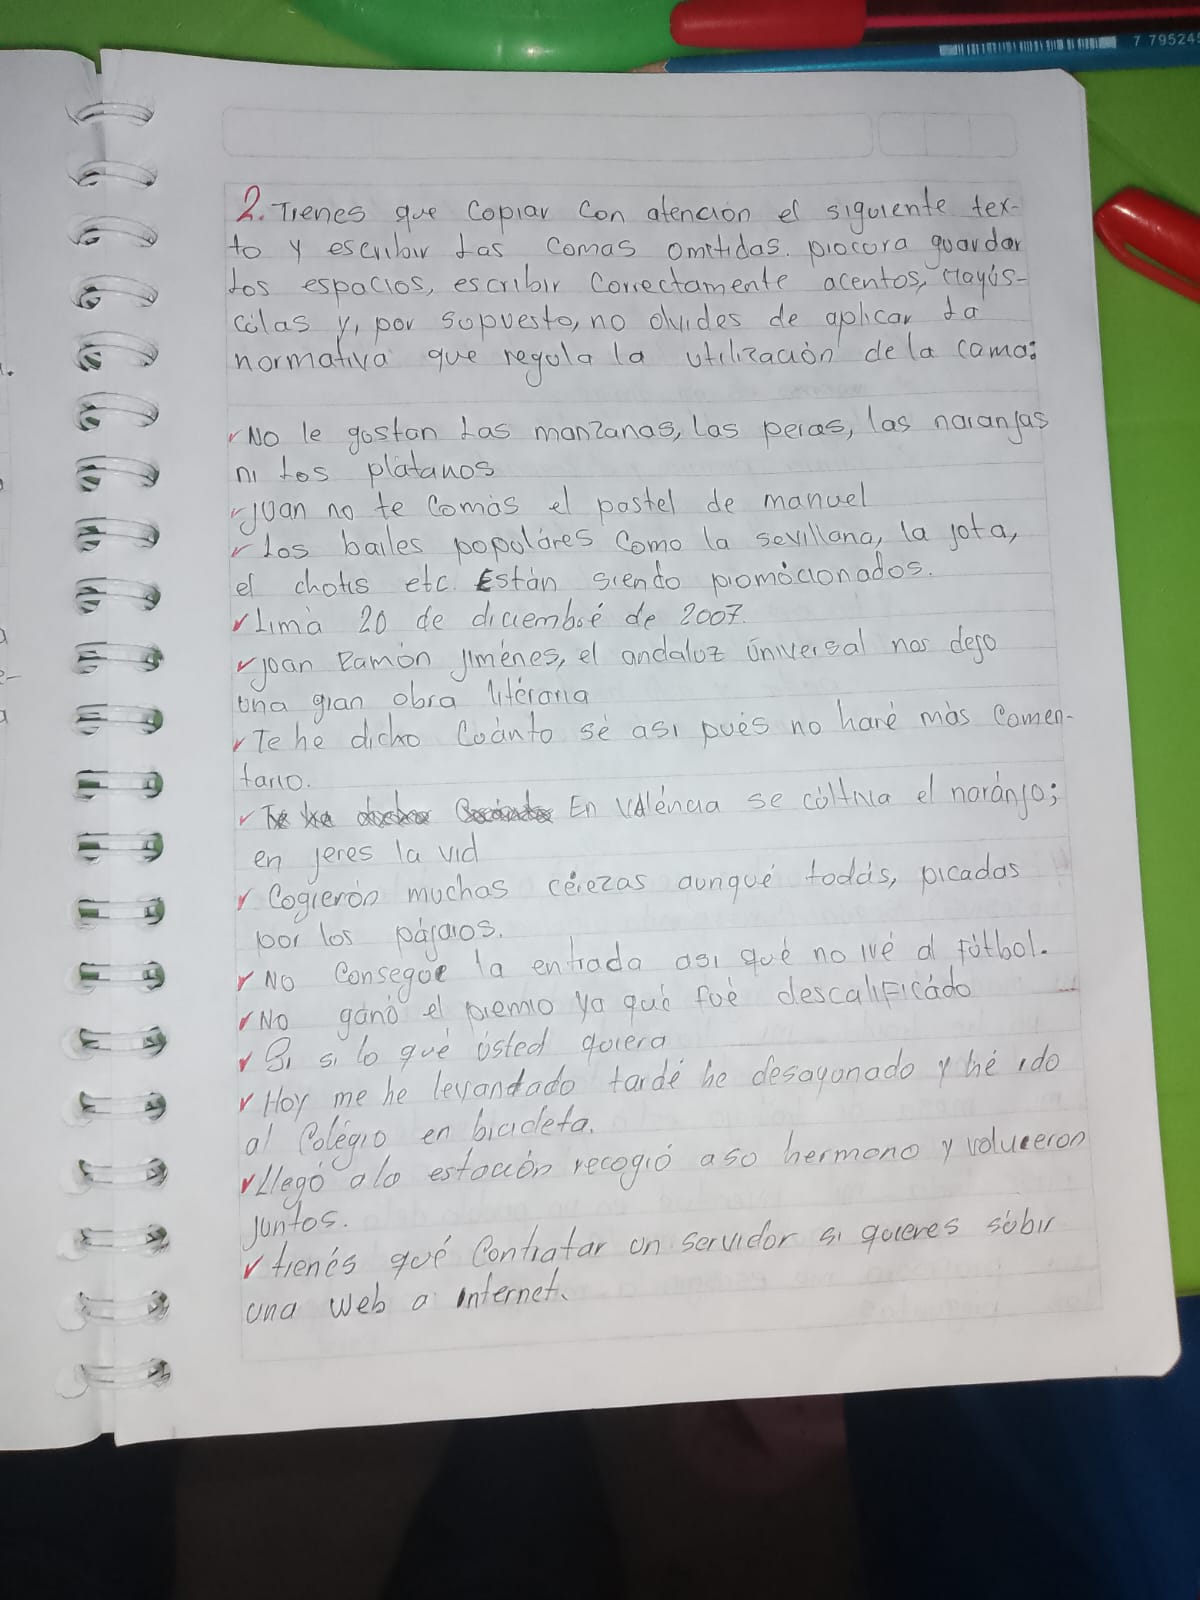 7 795245
2. Tienes que copiar con atención el siguiente tex-
to y escribir las comas omitidas. procura guardar
los espacios, escribir correctamente acentos, Mayús-
cúlas y, por supuesto, no olvides de aplicar la
normativa que regula la utilización de la coma:
No le gustan las manzanas, las peras, las naranjas
ni los plátanos
juan no te comás el pastel de manuel
los bailes populáres como la sevillana, la jota,
el chotis etc. Están siendo promócionados.
Limá 20 de diciembré de 2007.
juan Ramón jiménes, el andaluz úniversal nos dejo
una gran obra litéraria
Te he dicho Cuánto sé asi pués no haré más comen-
tario.
En Valéncia se cúltiva el naránjo;
en jeres la vid
Cogierón muchas cérezas aunqué todás, picadas
por los pájaros.
No consegue la entrada asi qué no iré al fútbol.
No ganó el premio ya qué fué descalificádo
Si si lo qué ústed quiera
Hoy me he levandado tardé he desayunado y hé ido
al Colégio en bicicleta.
Llegó a la estación recogió a so hermano y voluceron
juntos.
tienés qué Contratar un servidor si quieres súbir
una web a internet.